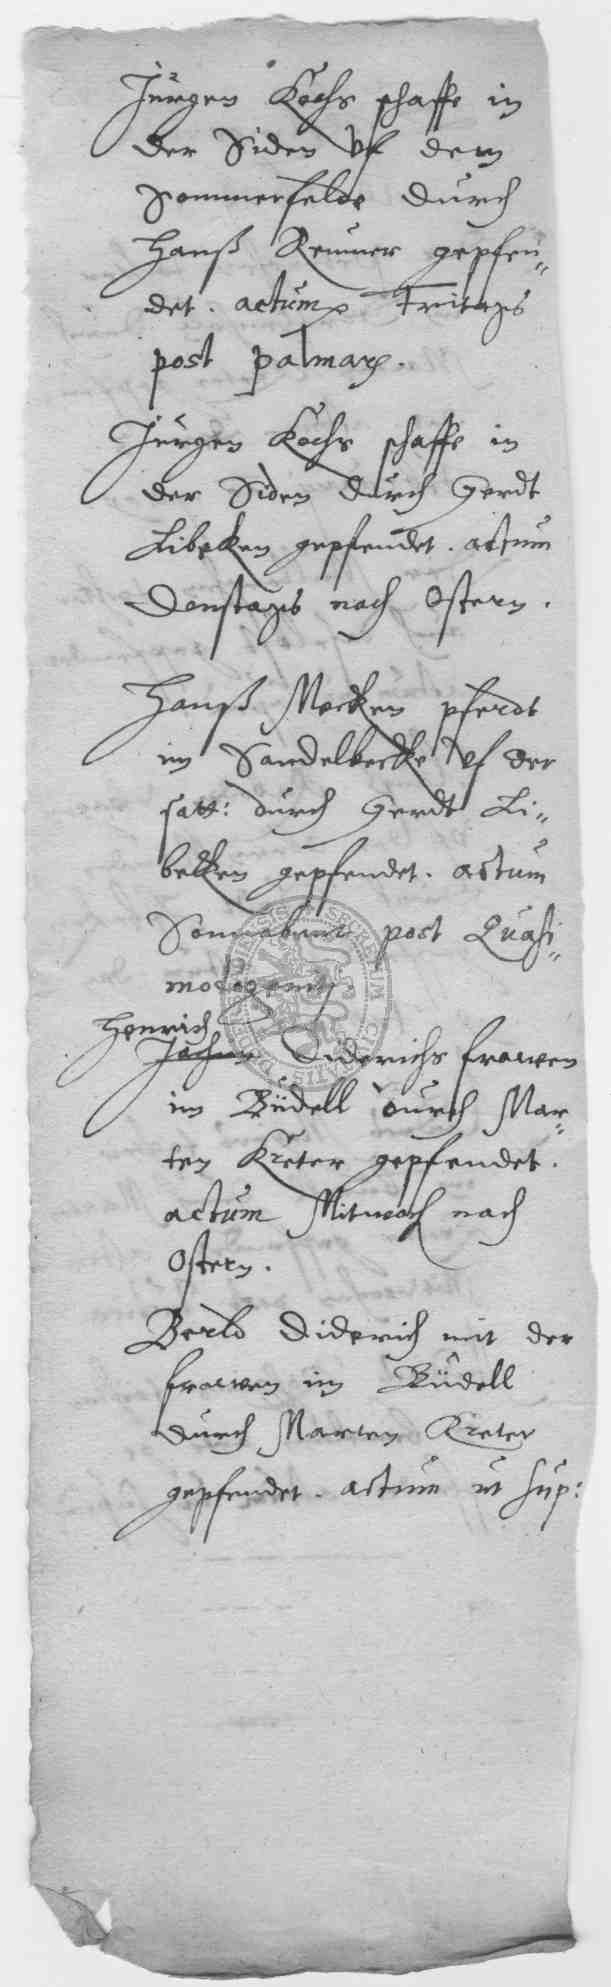 Jürgen Kochs schaffe in
der Siden vf dem
Sommerfelde durch
Hanß Remmer gepfen„
det. actum Fritags
post palmar.
Jürgen Kochs schaffe in
der Siden durch Gerdt
Libeken gepfendet. actum
Donstags nach Ostern.
Hanß Mecken pferdt
im Sandelbecke vf der
satt: durch Gerdt Li„
beken gepfendet. actum
Sonnabent post Quasi„
modogeniti
Henrich
Diderichs frawen
im Büdell durch Mar„
ten Kreter gepfendet.
actum Mitwoch nach
Ostern.
Berld Diderich mit der
frawen im Büdell
durch Marten Kreter
gepfendet. actum ut sup: